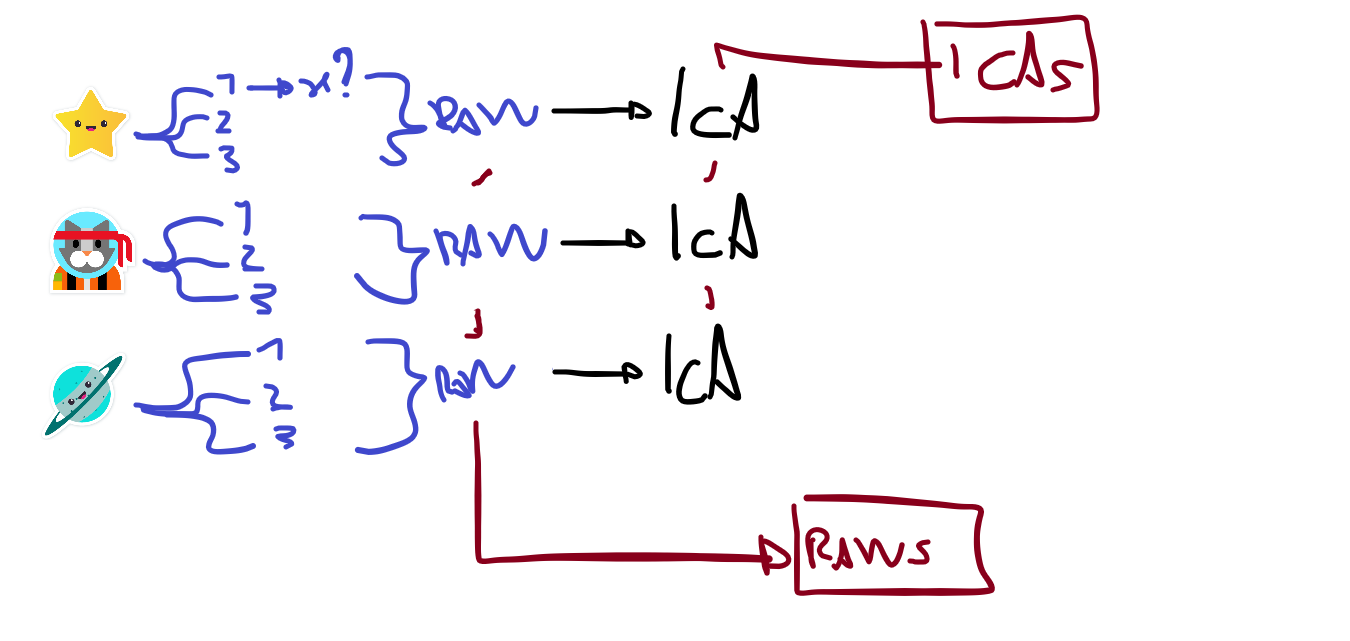 1 → x?
2
3
RAW → ICA
ICAs
1
2
3
RAW → ICA
1
2
3
RAW → ICA
RAWS